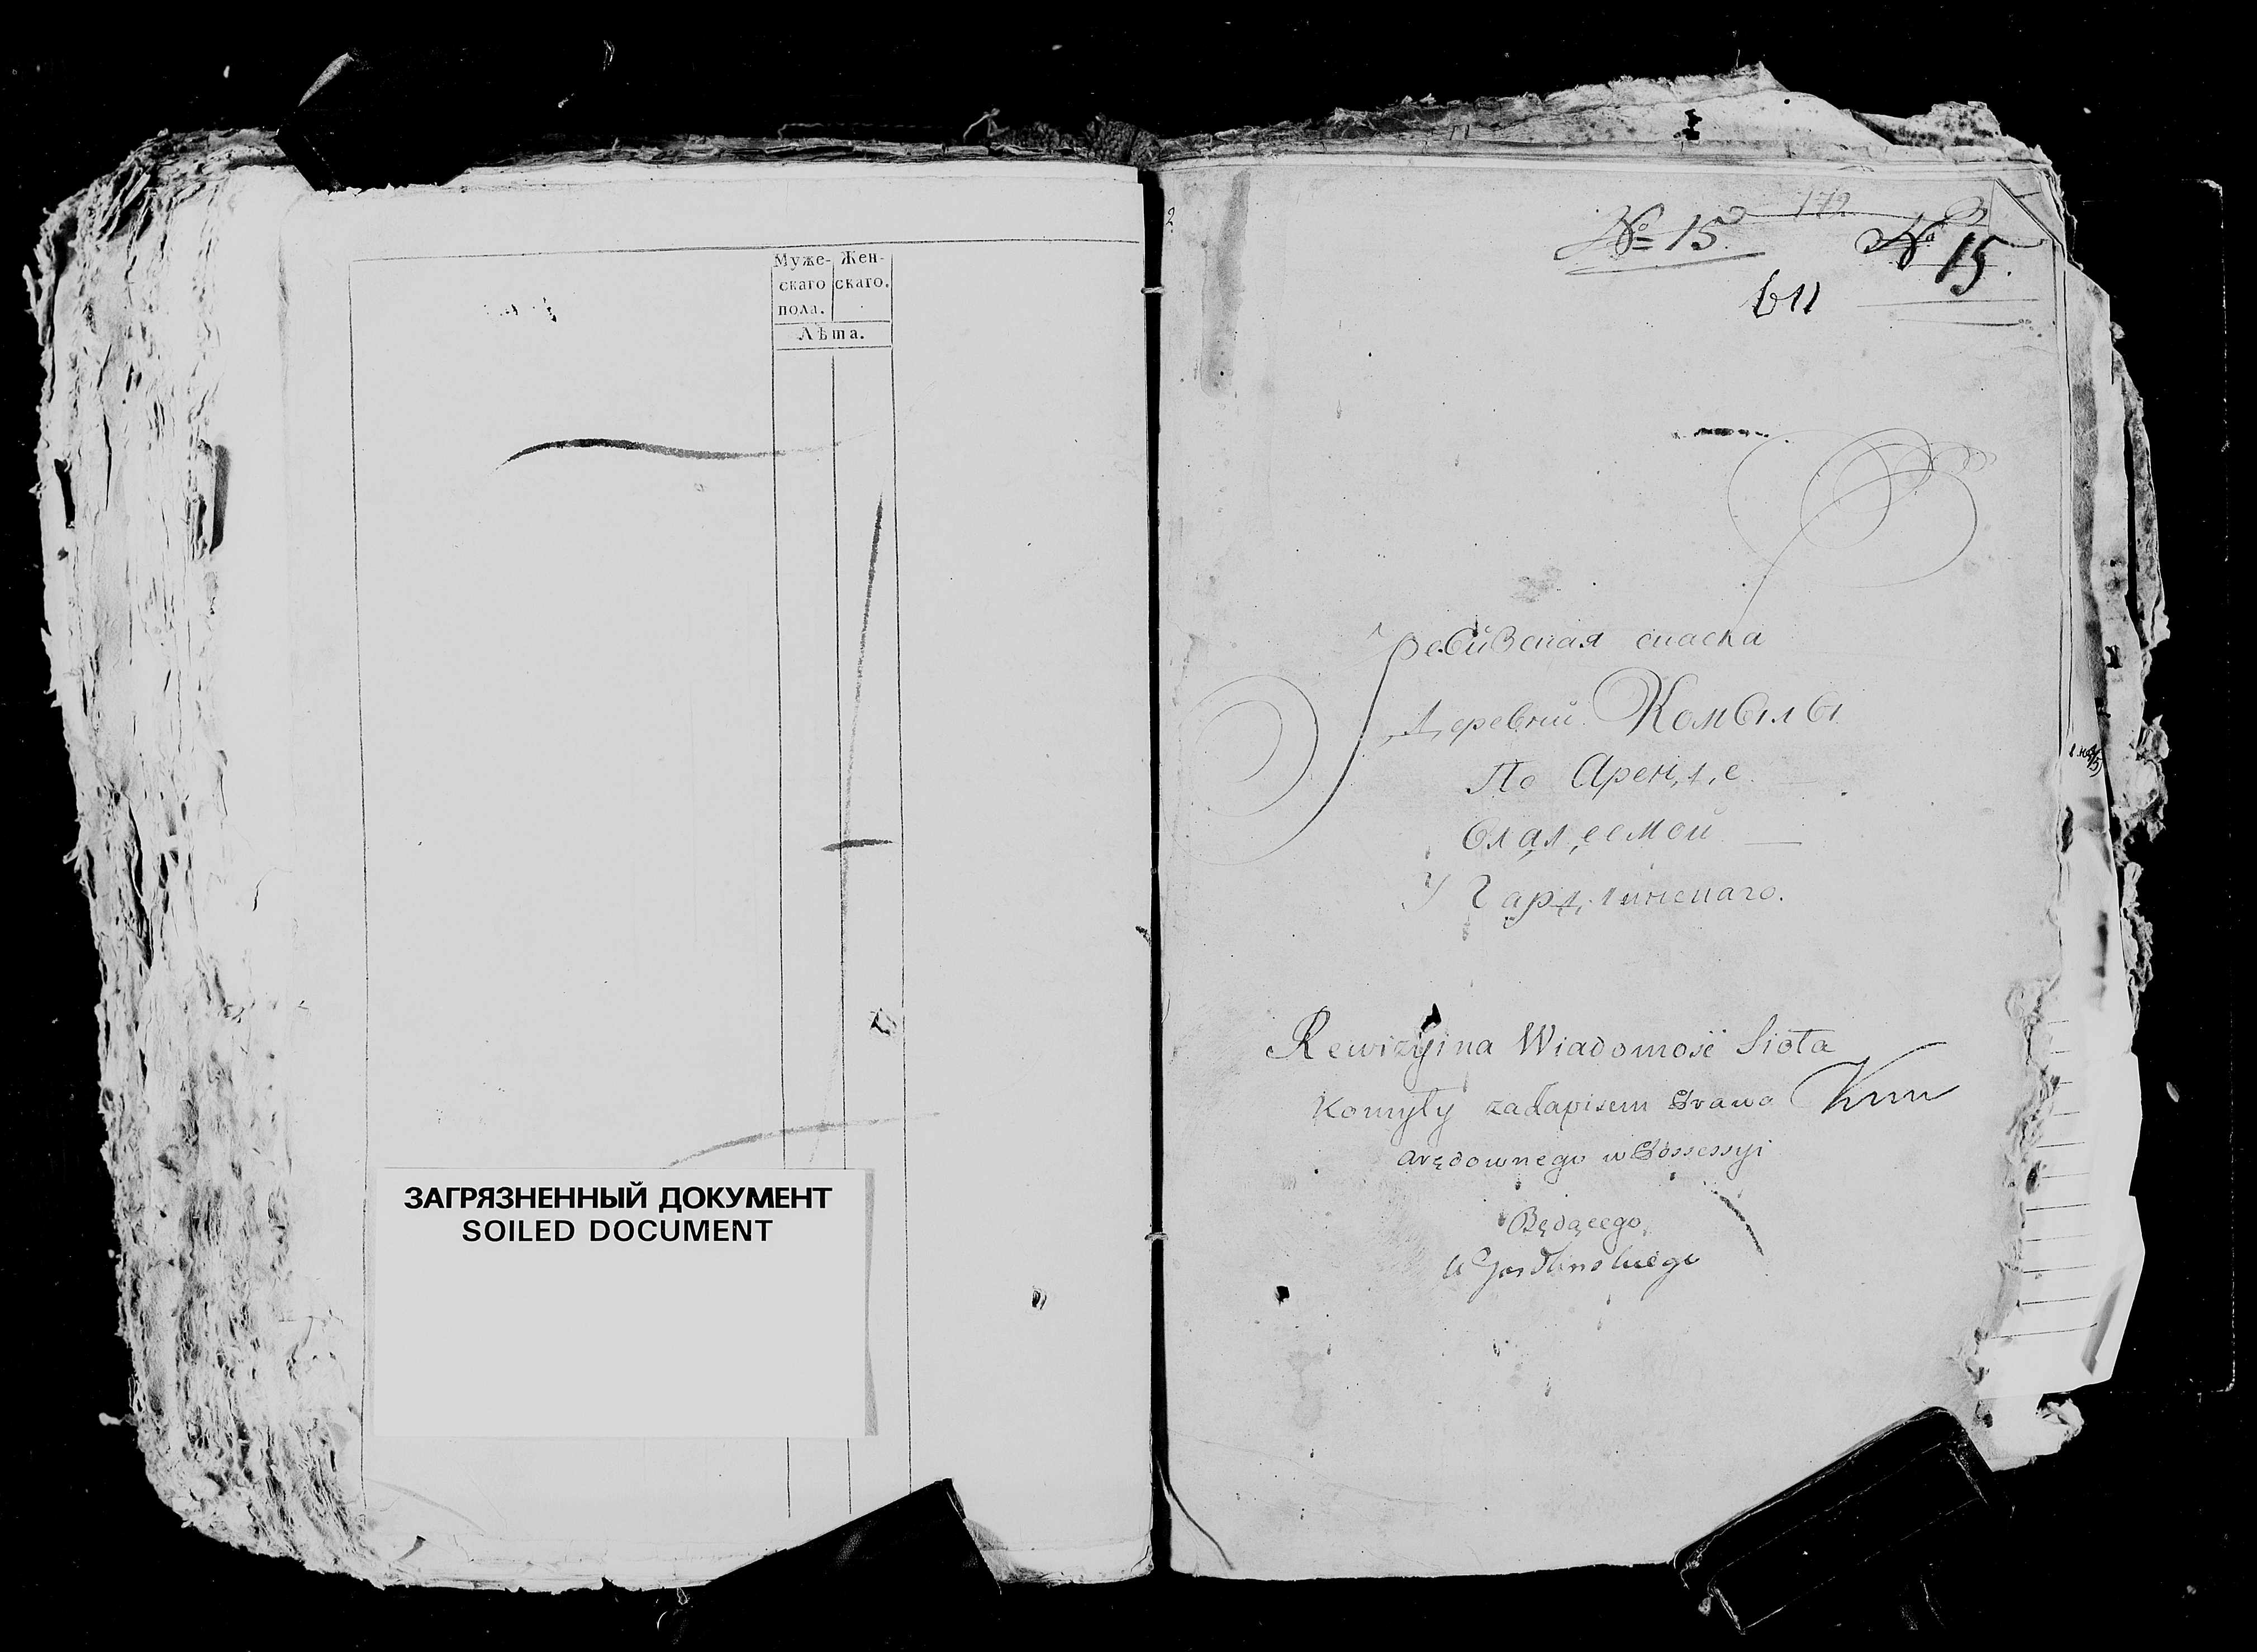 Муже- Жен-
скаго скаго.
пола.
Лѣта.
ЗАГРЯЗНЕННЫЙ ДОКУМЕНТ
SOILED DOCUMENT
172
№ 15 № 15.
611
Ревизская скаска
Деревни Комылы
По Аренде
владеемой
У Гардлинскаго.
Rewizyina Wiadomość Sioła
Komyły zadapisem Prawa
Arędownego w Possessyi
Będącego